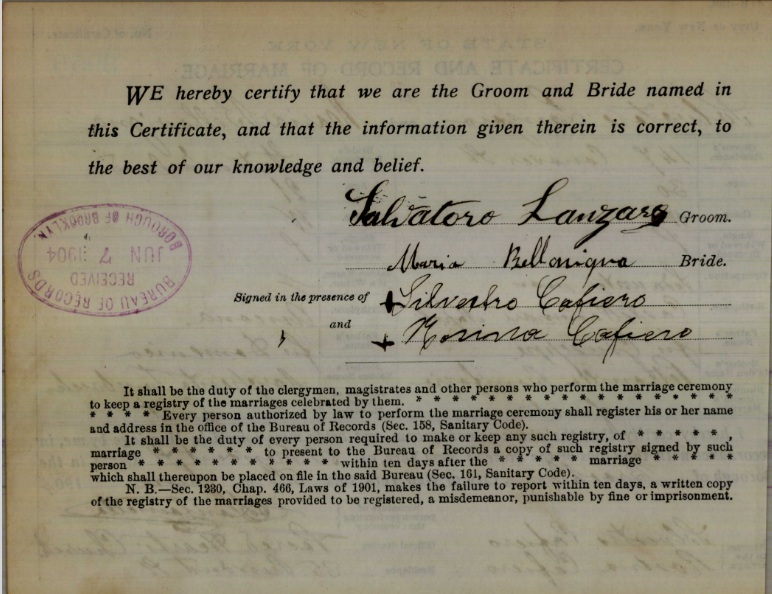 WE hereby certify that we are the Groom and Bride named in
this Certificate, and that the information given therein is correct, to
the best of our knowledge and belief.
Salvatoro Lanzaro Groom.
Maria Bride.
Signed in the presence of Silvestro Cafiero
and Cafiero
BUREAU OF RECORDS
RECEIVED
JUN 7 1904
BOROUGH OF BROOKLYN
It shall be the duty of the clergymen, magistrates and other persons who perform the marriage ceremony
to keep a registry of the marriages celebrated by them. * * * * * * * * * * * * * * *
* * * * Every person authorized by law to perform the marriage ceremony shall register his or her name
and address in the office of the Bureau of Records (Sec. 158, Sanitary Code).
It shall be the duty of every person required to make or keep any such registry, of * * * * * ,
marriage * * * * * * to present to the Bureau of Records a copy of such registry signed by such
person * * * * * * * * * * * within ten days after the * * * * * marriage * * * * *
which shall thereupon be placed on file in the said Bureau (Sec. 161, Sanitary Code).
N. B.—Sec. 1239, Chap. 466, Laws of 1901, makes the failure to report within ten days, a written copy
of the registry of the marriages provided to be registered, a misdemeanor, punishable by fine or imprisonment.
STATE OF NEW YORK
CERTIFICATE AND RECORD OF MARRIAGE